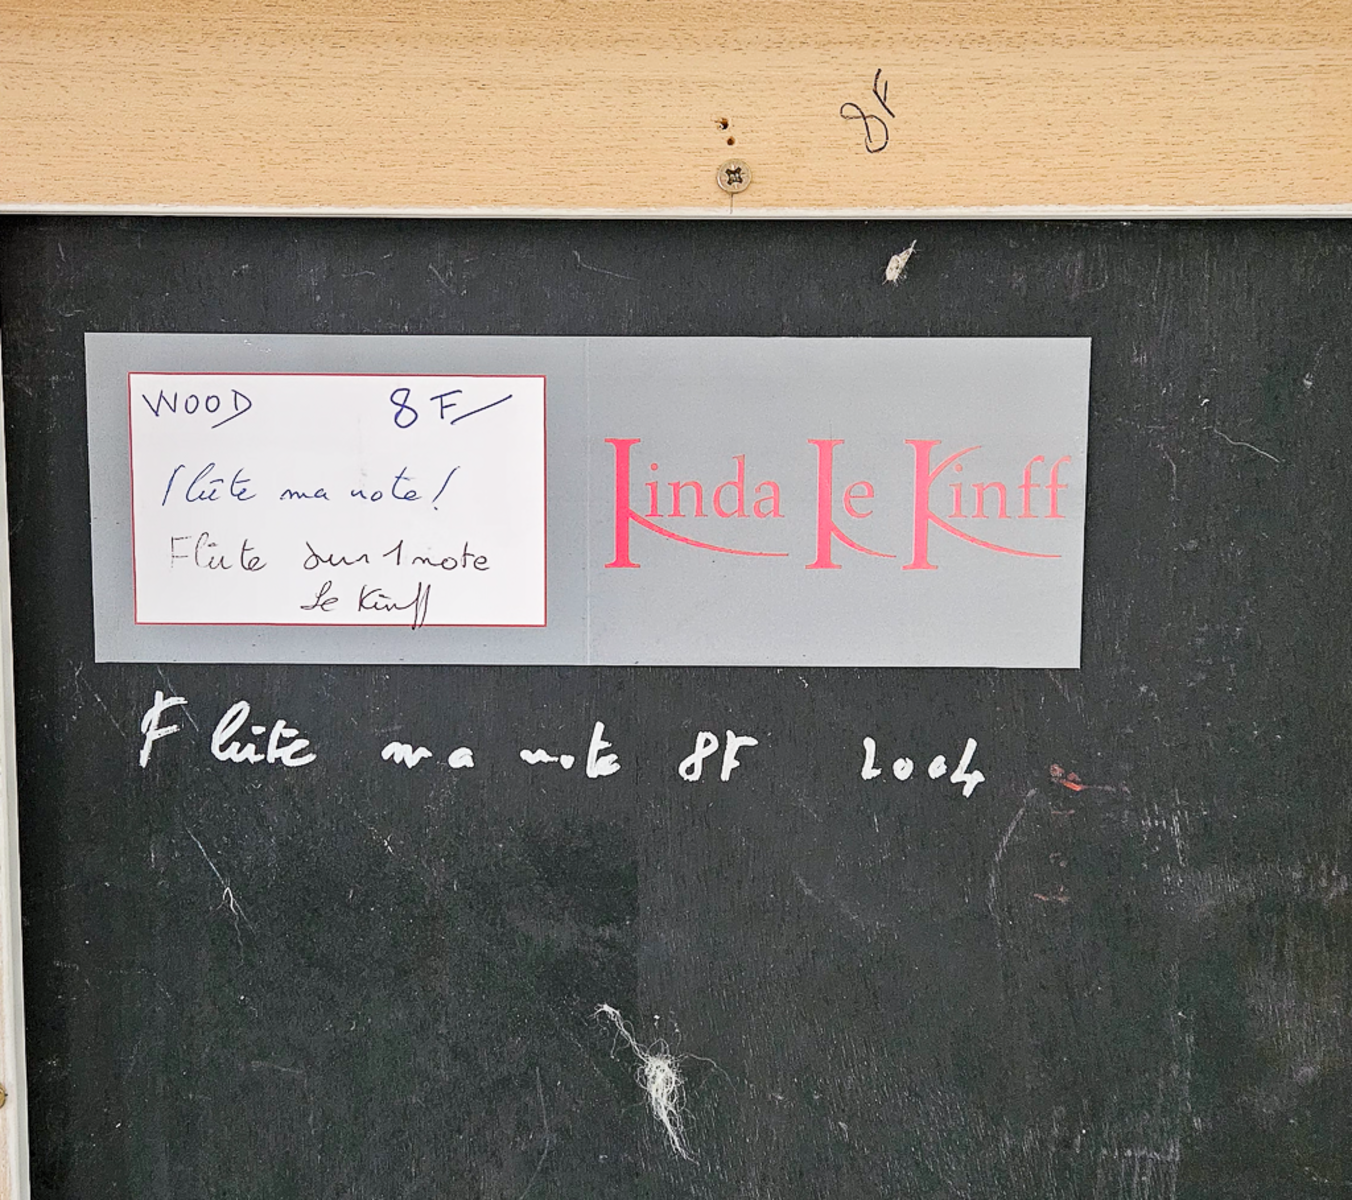 8F
WOOD 8F
Flûte ma note!
Flûte sur 1 note
Le Kinff
Linda Le Kinff
Flûte ma note 8F 2004